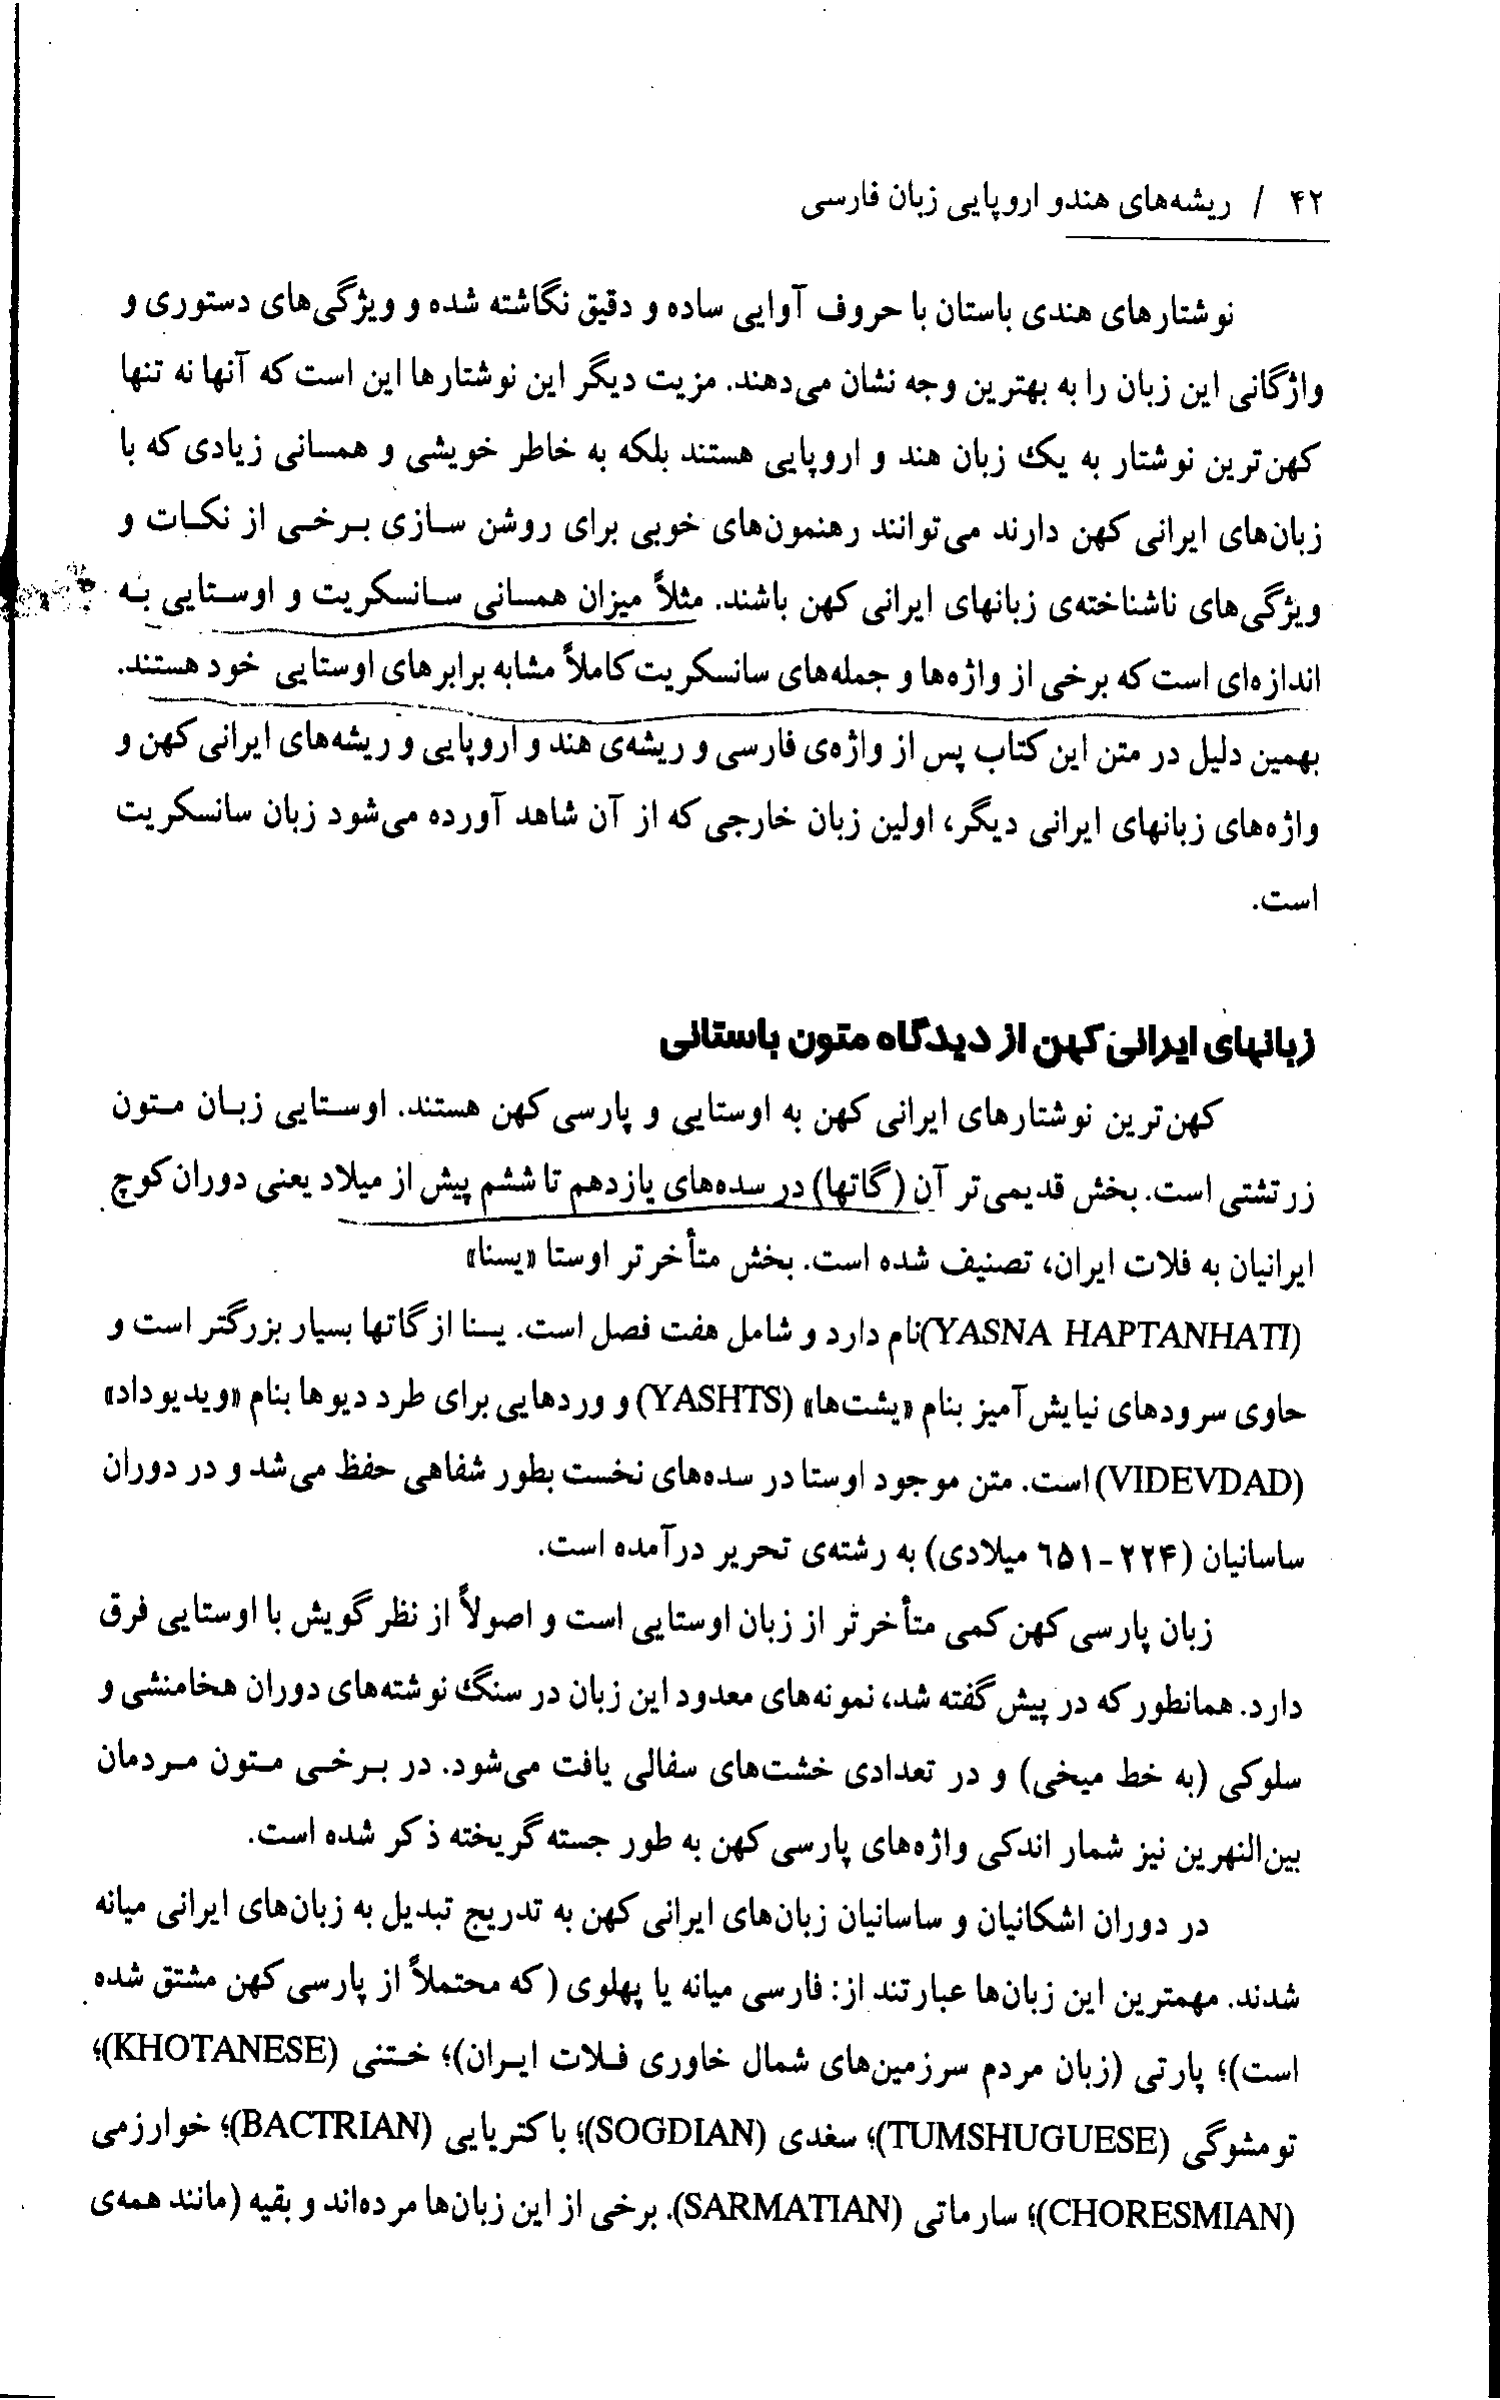 ۴۲ / ریشه‌های هندو اروپایی زبان فارسی
نوشتارهای هندی باستان با حروف آوایی ساده و دقیق نگاشته شده و ویژگی‌های دستوری و
واژگانی این زبان را به بهترین وجه نشان می‌دهند. مزیت دیگر این نوشتارها این است که آنها نه تنها
کهن‌ترین نوشتار به یک زبان هند و اروپایی هستند بلکه به خاطر خویشی و همسانی زیادی که با
زبان‌های ایرانی کهن دارند می‌توانند رهنمون‌های خوبی برای روشن سازی برخی از نکات و
ویژگی‌های ناشناخته‌ی زبانهای ایرانی کهن باشند. مثلاً میزان همسانی سانسکریت و اوستایی به
اندازه‌ای است که برخی از واژه‌ها و جمله‌های سانسکریت کاملاً مشابه برابرهای اوستایی خود هستند.
بهمین دلیل در متن این کتاب پس از واژه‌ی فارسی و ریشه‌ی هند و اروپایی و ریشه‌های ایرانی کهن و
واژه‌های زبانهای ایرانی دیگر، اولین زبان خارجی که از آن شاهد آورده می‌شود زبان سانسکریت
است.
زبانهای ایرانی کهن از دیدگاه متون باستانی
کهن‌ترین نوشتارهای ایرانی کهن به اوستایی و پارسی کهن هستند. اوستایی زبان متون
زرتشتی است. بخش قدیمی‌تر آن (گاتها) در سده‌های یازدهم تا ششم پیش از میلاد یعنی دوران کوچ
ایرانیان به فلات ایران، تصنیف شده است. بخش متأخرتر اوستا «یسنا»
(YASNA HAPTANHATI) نام دارد و شامل هفت فصل است. یسنا از گاتها بسیار بزرگتر است و
حاوی سرودهای نیایش‌آمیز بنام «یشت‌ها» (YASHTS) و وردهایی برای طرد دیوها بنام «ویدیوداد»
(VIDEVDAD) است. متن موجود اوستا در سده‌های نخست بطور شفاهی حفظ می‌شد و در دوران
ساسانیان (۲۲۴-۶۵۱ میلادی) به رشته‌ی تحریر درآمده است.
زبان پارسی کهن کمی متأخرتر از زبان اوستایی است و اصولاً از نظر گویش با اوستایی فرق
دارد. همانطور که در پیش گفته شد، نمونه‌های معدود این زبان در سنگ نوشته‌های دوران هخامنشی و
سلوکی (به خط میخی) و در تعدادی خشت‌های سفالی یافت می‌شود. در برخی متون مردمان
بین‌النهرین نیز شمار اندکی واژه‌های پارسی کهن به طور جسته گریخته ذکر شده است.
در دوران اشکانیان و ساسانیان زبان‌های ایرانی کهن به تدریج تبدیل به زبان‌های ایرانی میانه
شدند. مهمترین این زبان‌ها عبارتند از: فارسی میانه یا پهلوی (که محتملاً از پارسی کهن مشتق شده
است)؛ پارتی (زبان مردم سرزمین‌های شمال خاوری فلات ایران)؛ ختنی (KHOTANESE)؛
تومشوگی (TUMSHUGUESE)؛ سغدی (SOGDIAN)؛ باکتریایی (BACTRIAN)؛ خوارزمی
(CHORESMIAN)؛ سارماتی (SARMATIAN). برخی از این زبان‌ها مرده‌اند و بقیه (مانند همه‌ی